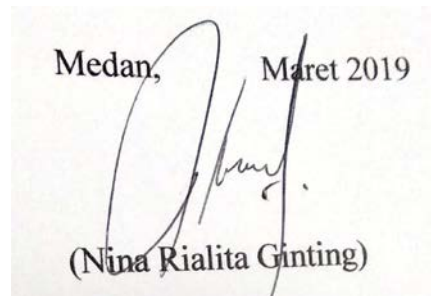 Medan, Maret 2019
(Nina Rialita Ginting)